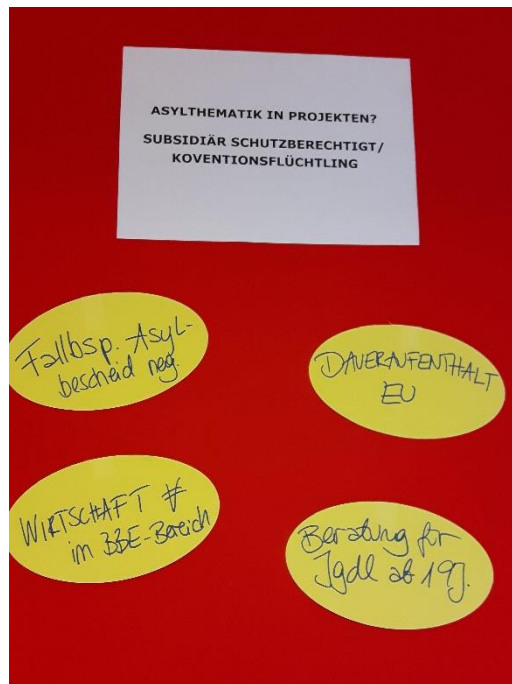 ASYLTHEMATIK IN PROJEKTEN?
SUBSIDIÄR SCHUTZBERECHTIGT/
KOVENTIONSFLÜCHTLING
Fallbsp. Asyl-
bescheid neg.
DAUERAUFENTHALT
EU
WIRTSCHAFT #
im BBE-Bereich
Beratung für
Jgdl ab 19J.